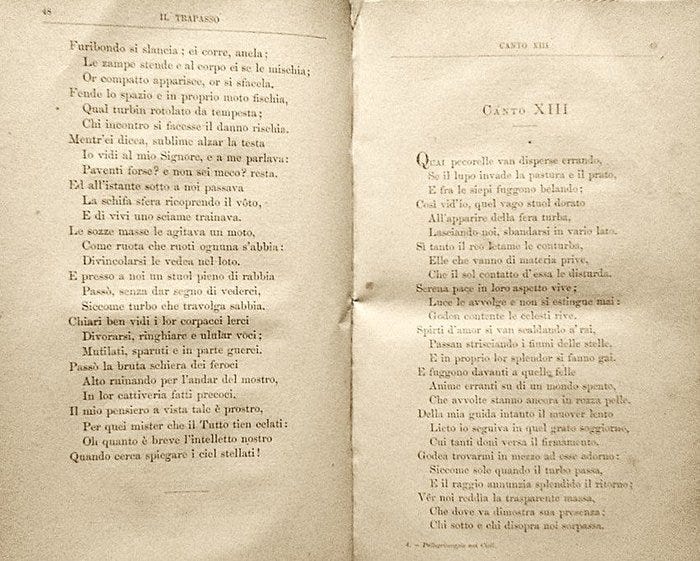 48
IL TRAPASSO
Furibondo si slancia; ei corre, anela;
Le zampe stende e al corpo ei se le mischia;
Or compatto apparisce, or si sfacela.
Fende lo spazio e in proprio moto fischia,
Qual turbin rotolato da tempesta;
Chi incontro si facesse il danno rischia.
Mentr'ei dicea, sublime alzar la testa
Io vidi al mio Signore, e a me parlava:
Paventi forse? e non sei meco? resta.
Ed all'istante sotto a noi passava
La schifa sfera ricoprendo il vôto,
E di vivi uno sciame trainava.
Le sozze masse le agitava un moto,
Come ruota che ruoti ognuna s'abbia:
Divincolarsi le vedea nel loto.
E presso a noi un stuol pieno di rabbia
Passò, senza dar segno di vederci,
Siccome turbo che travolga sabbia.
Chiari ben vidi i lor corpacci lerci
Divorarsi, ringhiare e ulular voci;
Mutilati, sparuti e in parte guerci.
Passò la bruta schiera dei feroci
Alto ruinando per l'andar del mostro,
In lor cattiveria fatti precoci.
Il mio pensiero a vista tale è prostro,
Per quei mister che il Tutto tien celati:
Oh quanto è breve l'intelletto nostro
Quando cerca spiegare i ciel stellati!
CANTO XIII
49
CANTO XIII
Quai pecorelle van disperse errando,
Se il lupo invade la pastura e il prato,
E fra le siepi fuggono belando;
Così vid'io, quel vago stuol dorato
All'apparire della fera turba,
Lasciando noi, sbandarsi in vario lato.
Sì tanto il reo letame le conturba,
Elle che vanno di materia prive,
Che il sol contatto d'essa le disturba.
Serena pace in loro aspetto vive;
Luce le avvolge e non si estingue mai:
Godon contente le celesti rive.
Spirti d'amor si van scaldando a' rai,
Passan strisciando i fiumi delle stelle.
E in proprio lor splendor si fanno gai.
E fuggono davanti a quelle felle
Anime erranti su di un mondo spento,
Che avvolte stanno ancora in rozza pelle.
Della mia guida intanto il muover lento
Lieto io seguiva in quel grato soggiorno,
Cui tanti doni versa il firmamento.
Godea trovarmi in mezzo ad esse adorno:
Siccome sole quando il turbo passa,
E il raggio annunzia splendido il ritorno;
Vêr noi reddìa la trasparente massa,
Che dove va dimostra sua presenza;
Chi sotto e chi disopra noi sorpassa.
4. — Pellegrinaggio nei Cieli.